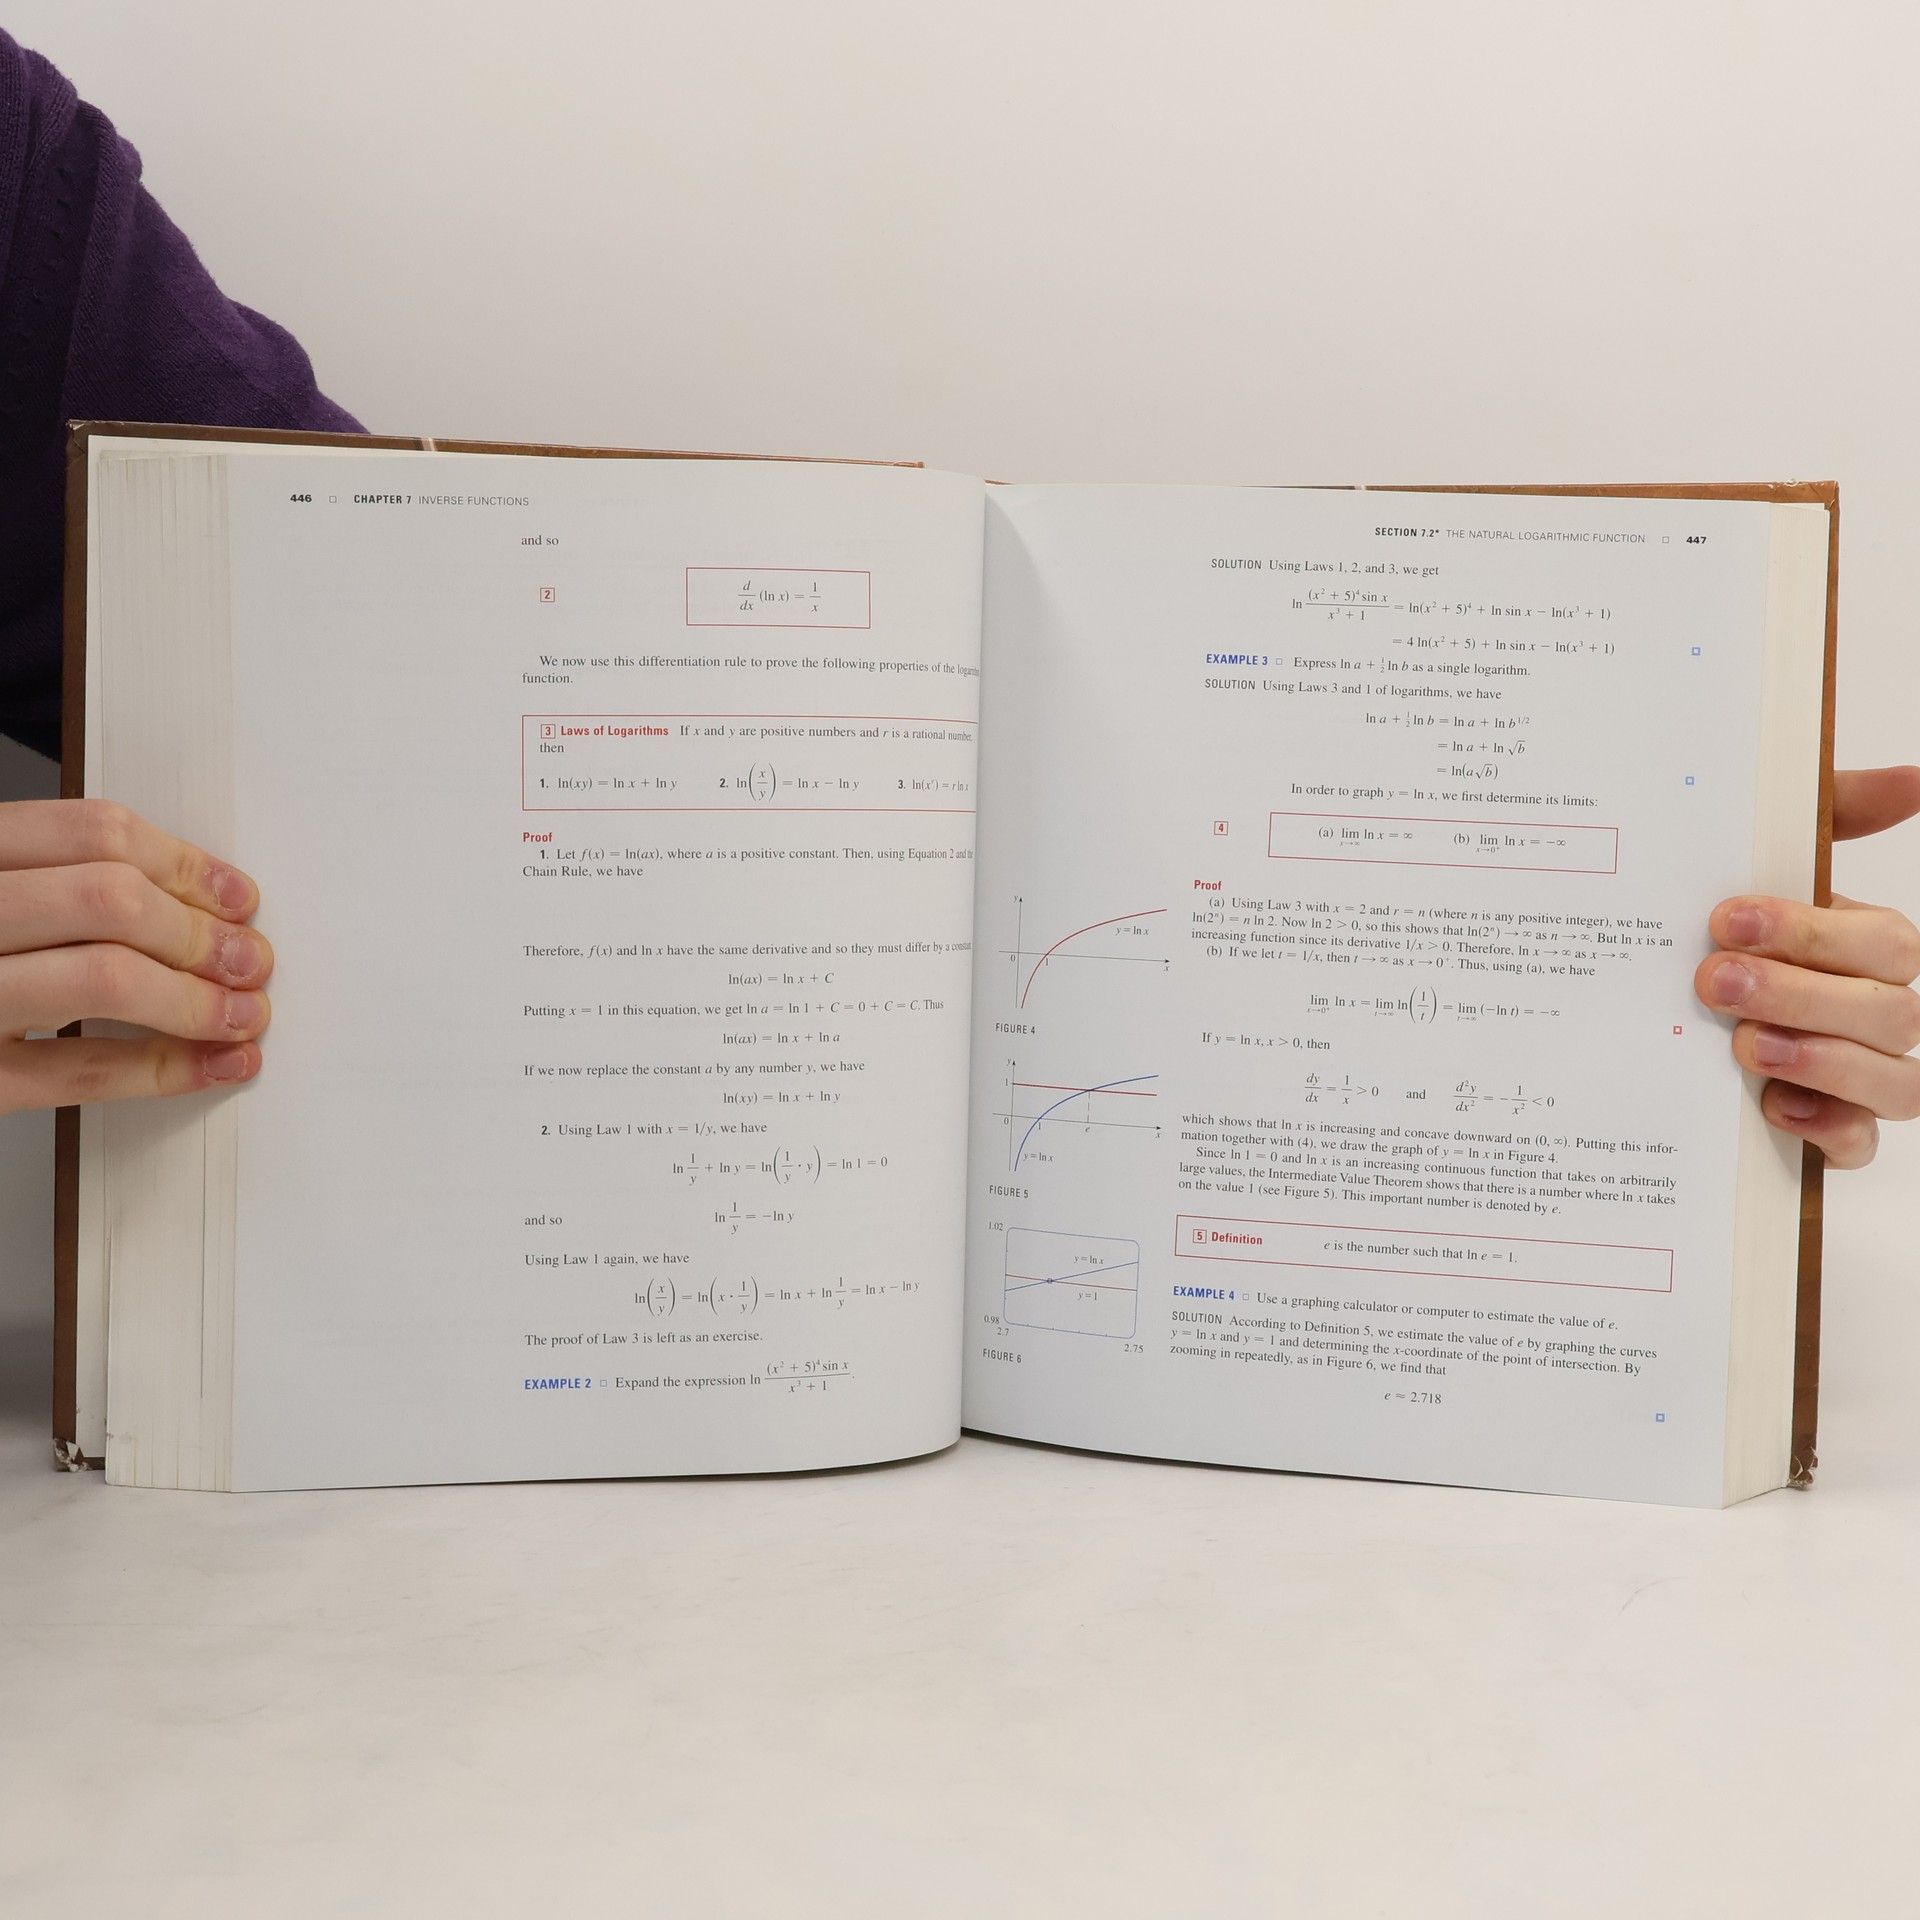 446 □ CHAPTER 7 INVERSE FUNCTIONS
and so
2 d/dx (ln x) = 1/x
We now use this differentiation rule to prove the following properties of the logarithm
function.
3 Laws of Logarithms If x and y are positive numbers and r is a rational number,
then
1. ln(xy) = ln x + ln y 2. ln(x/y) = ln x − ln y 3. ln(xʳ) = r ln x
Proof
1. Let f(x) = ln(ax), where a is a positive constant. Then, using Equation 2 and the
Chain Rule, we have
Therefore, f(x) and ln x have the same derivative and so they must differ by a constant
ln(ax) = ln x + C
Putting x = 1 in this equation, we get ln a = ln 1 + C = 0 + C = C. Thus
ln(ax) = ln x + ln a
If we now replace the constant a by any number y, we have
ln(xy) = ln x + ln y
2. Using Law 1 with x = 1/y, we have
ln 1/y + ln y = ln(1/y · y) = ln 1 = 0
and so ln 1/y = −ln y
Using Law 1 again, we have
ln(x/y) = ln(x · 1/y) = ln x + ln 1/y = ln x − ln y
The proof of Law 3 is left as an exercise.
EXAMPLE 2 □ Expand the expression ln (x² + 5)⁴ sin x / x³ + 1.
SECTION 7.2* THE NATURAL LOGARITHMIC FUNCTION □ 447
SOLUTION Using Laws 1, 2, and 3, we get
ln (x² + 5)⁴ sin x / x³ + 1 = ln(x² + 5)⁴ + ln sin x − ln(x³ + 1)
= 4 ln(x² + 5) + ln sin x − ln(x³ + 1)
EXAMPLE 3 □ Express ln a + ½ ln b as a single logarithm.
SOLUTION Using Laws 3 and 1 of logarithms, we have
ln a + ½ ln b = ln a + ln b^1/2
= ln a + ln √b
= ln(a√b)
In order to graph y = ln x, we first determine its limits:
4 (a) lim x→∞ ln x = ∞ (b) lim x→0⁺ ln x = −∞
Proof
(a) Using Law 3 with x = 2 and r = n (where n is any positive integer), we have
ln(2ⁿ) = n ln 2. Now ln 2 > 0, so this shows that ln(2ⁿ) → ∞ as n → ∞. But ln x is an
increasing function since its derivative 1/x > 0. Therefore, ln x → ∞ as x → ∞.
(b) If we let t = 1/x, then t → ∞ as x → 0⁺. Thus, using (a), we have
lim x→0⁺ ln x = lim t→∞ ln(1/t) = lim t→∞ (−ln t) = −∞
If y = ln x, x > 0, then
dy/dx = 1/x > 0 and d²y/dx² = −1/x² < 0
which shows that ln x is increasing and concave downward on (0, ∞). Putting this infor-
mation together with (4), we draw the graph of y = ln x in Figure 4.
Since ln 1 = 0 and ln x is an increasing continuous function that takes on arbitrarily
large values, the Intermediate Value Theorem shows that there is a number where ln x takes
on the value 1 (see Figure 5). This important number is denoted by e.
5 Definition e is the number such that ln e = 1.
EXAMPLE 4 □ Use a graphing calculator or computer to estimate the value of e.
SOLUTION According to Definition 5, we estimate the value of e by graphing the curves
y = ln x and y = 1 and determining the x-coordinate of the point of intersection. By
zooming in repeatedly, as in Figure 6, we find that
e ≈ 2.718
y
y = ln x
0 1 x
FIGURE 4
y
1
0 1 e x
y = ln x
FIGURE 5
1.02
y = ln x
y = 1
0.98
2.7 2.75
FIGURE 6